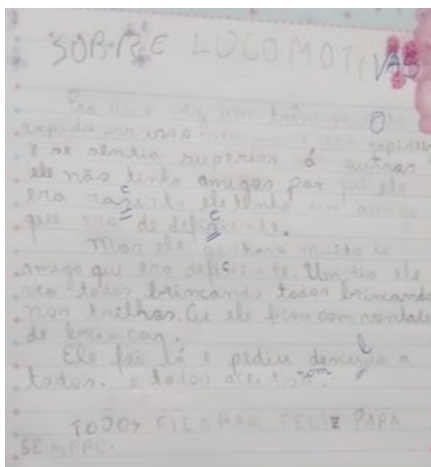 SOBRE LOCOMOTIVAS
Era uma vez um trem muito
rapido por isso
e se sentia superior á outros
ele não tenha amigos por ele
era racista ele tenha um amigo
que era de deficiente.
Mas ele gostava muito de
amigo que era deficiente. Um dia ele
veo todos brincando todos brincando
nos trilhos. Ai ele ficou com vontade
de brincar.
Ele foi lá e pediu desculpa a
todos. e todos aceitarom
TODOS FICARAM FELIZ PARA
SEMPRE.